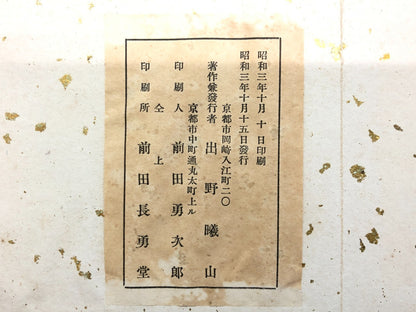 昭和三年十月 十 日印刷
昭和三年十月十五日發行
京都市岡崎入江町二〇
著作兼發行者 出野曦山
京都市中町通丸太町上ル
印刷人 前田勇次郎
仝上
印刷所 前田長勇堂